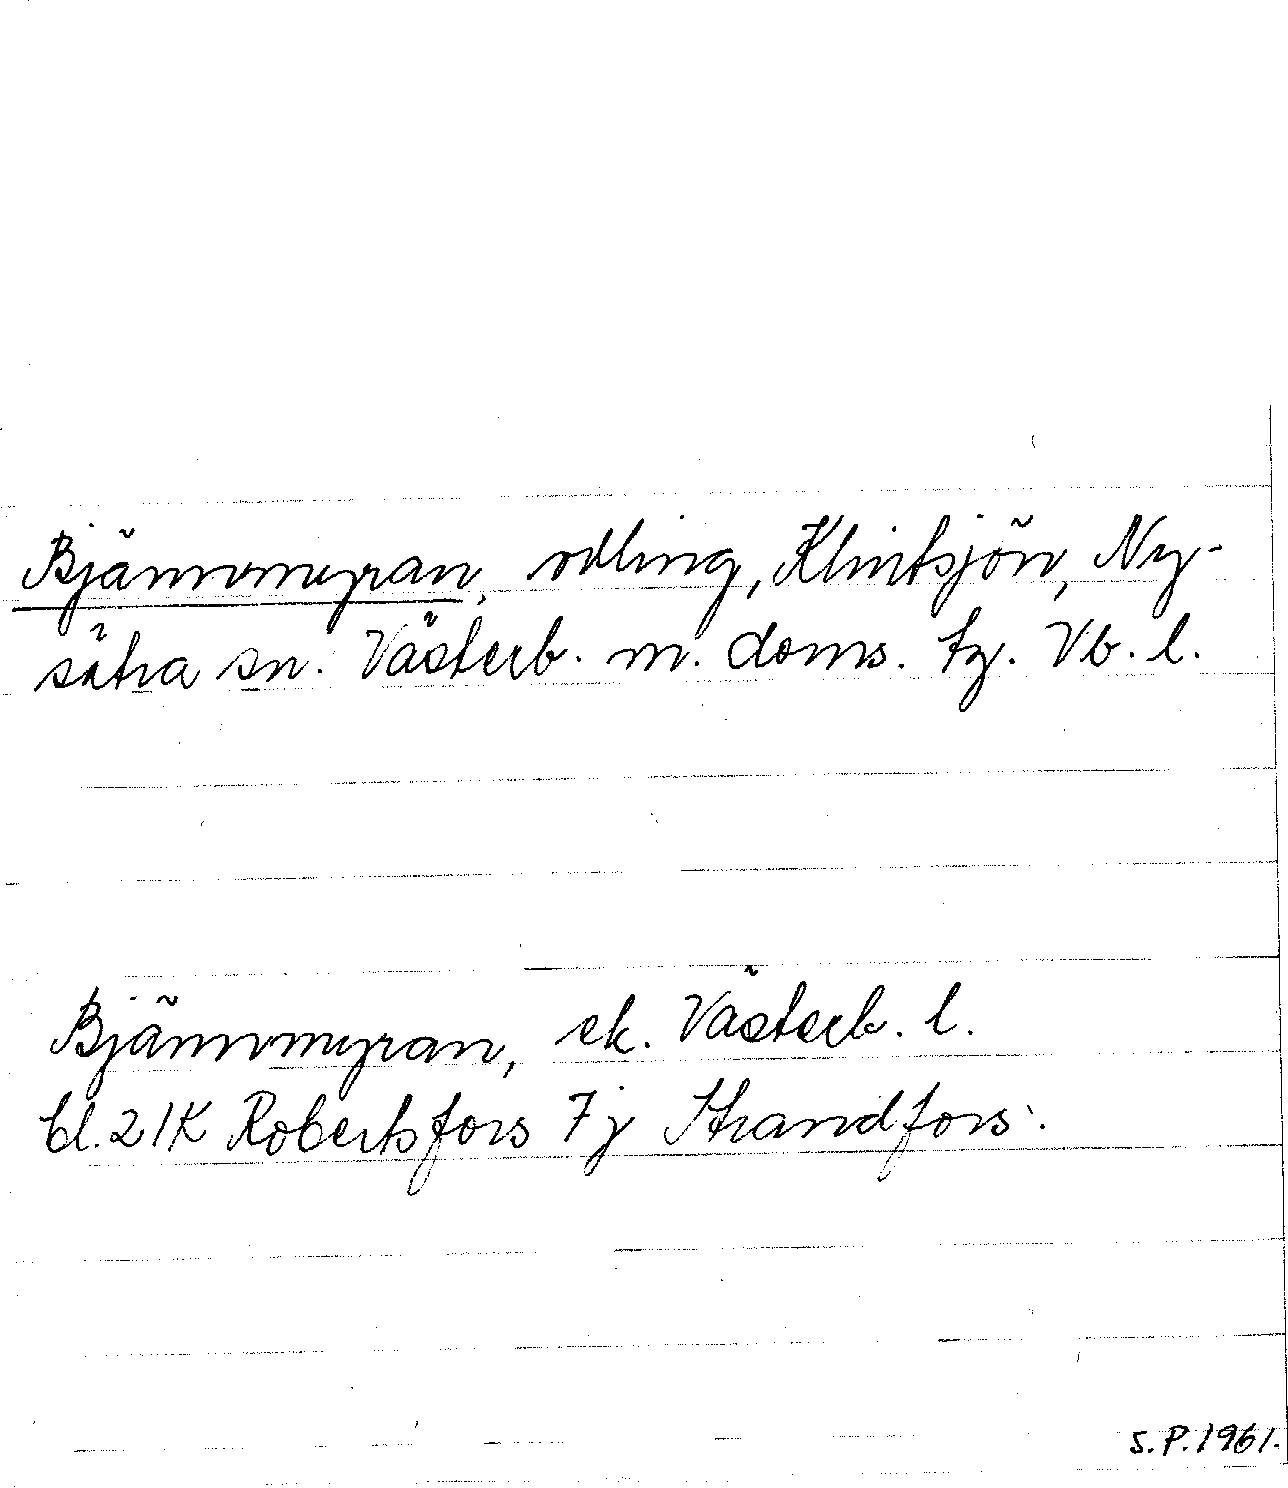 Bjännomyran, odling, Klintsjön, Ny-
sätra sn. Västerb. m. doms. tg. Vb. l.
Bjännomyran, ek. Västerb. l.
bl. 21K Robertsfors 7j Strandfors.
S.P. 1961.